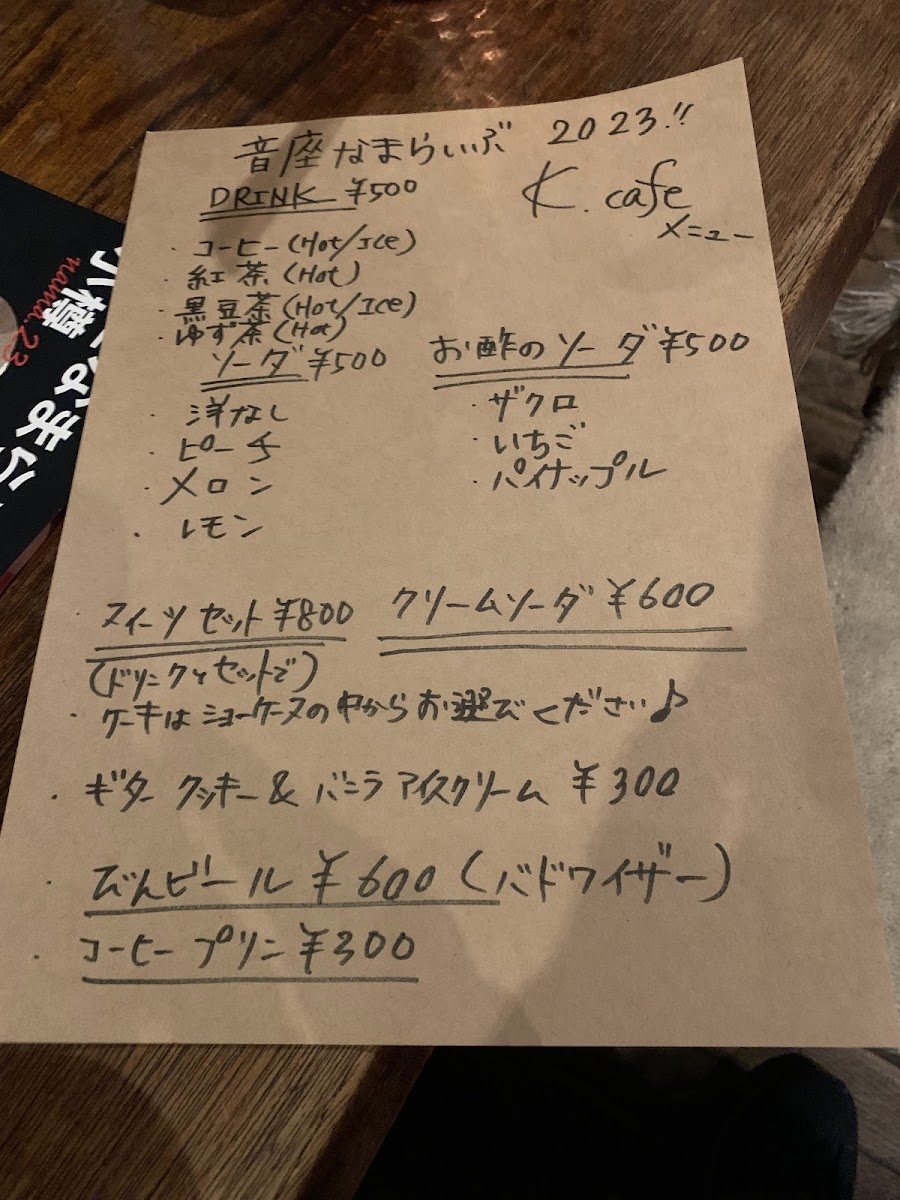 音座なまらいぶ 2023!!
K. cafe
メニュー
DRINK ¥500
・コーヒー(Hot/Ice)
・紅茶(Hot)
・黒豆茶(Hot/Ice)
・ゆず茶(Hot)
ソーダ ¥500
・洋なし
・ピーチ
・メロン
・レモン
お酢のソーダ ¥500
・ザクロ
・いちご
・パイナップル
・スイーツセット ¥800
(ドリンクとセットで)
クリームソーダ ¥600
・ケーキはショーケースの中からお選びください♪
・ギタークッキー&バニラアイスクリーム ¥300
・びんビール ¥600(バドワイザー)
・コーヒープリン ¥300
nama.23